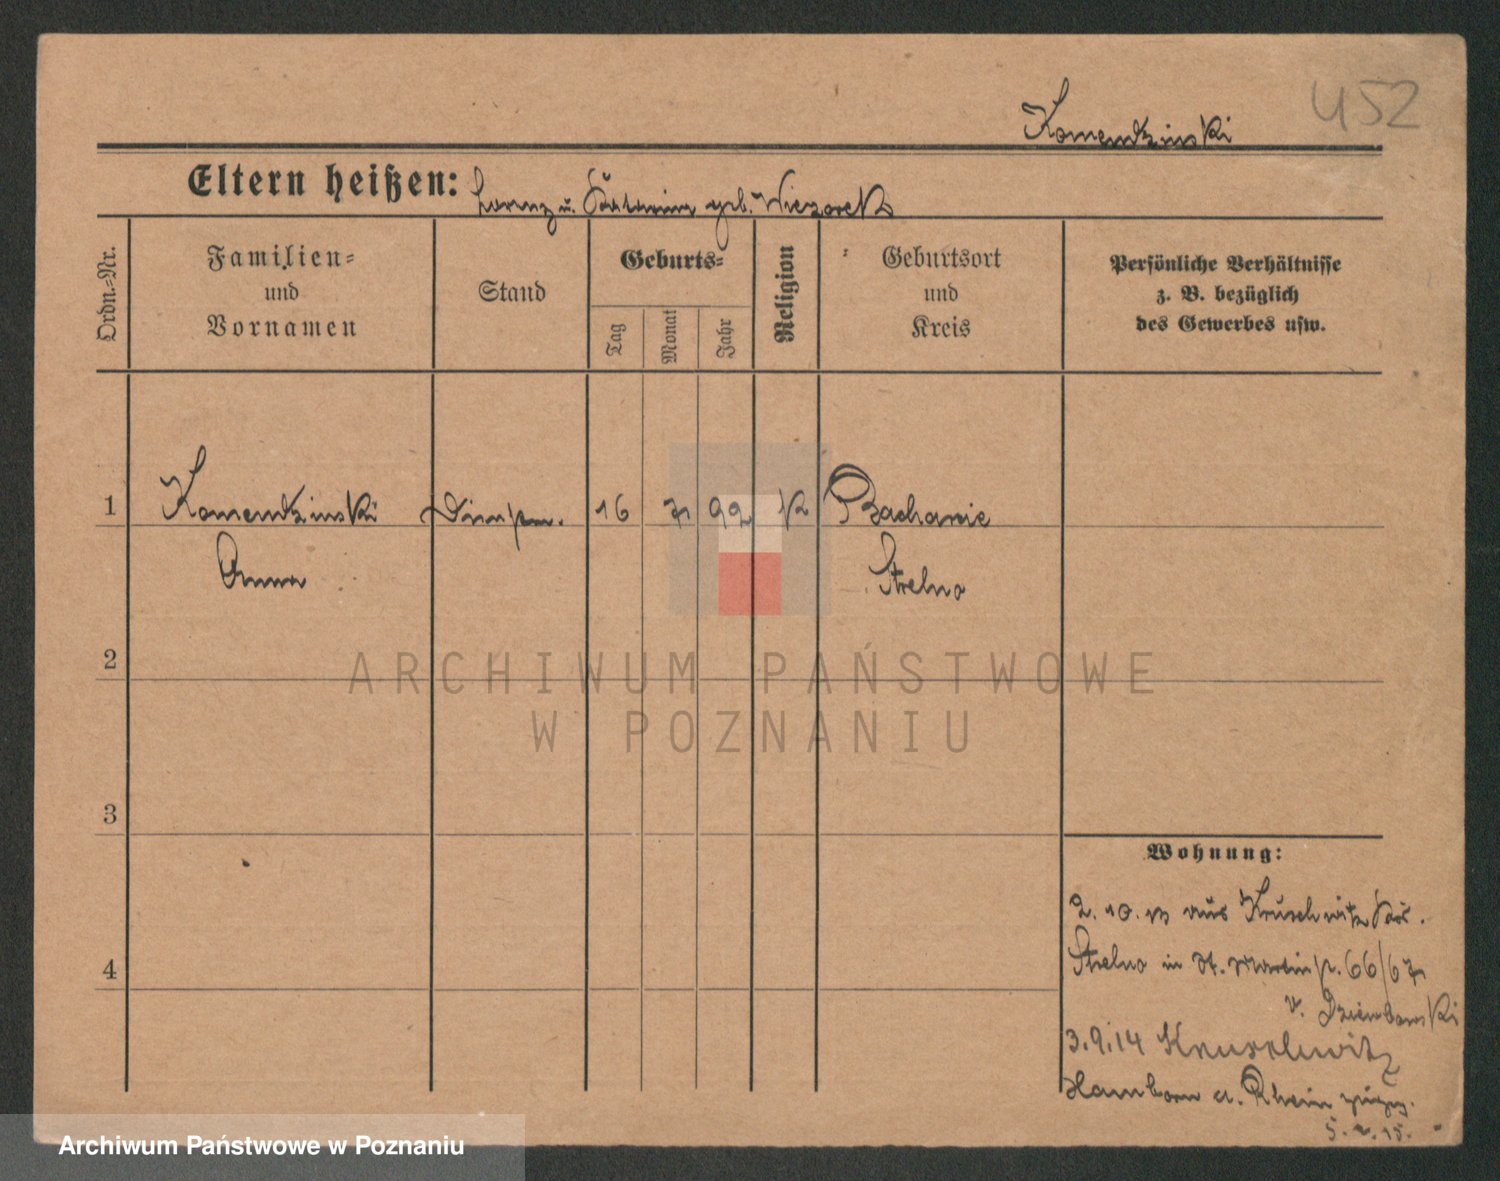 452
Komendzinski
Eltern heißen: Lorenz u. Katarina geb. Wiezorek
Ordn.-Nr.
Familien-
und
Vornamen
Stand
Geburts-
Tag
Monat
Jahr
Religion
Geburtsort
und
Kreis
Persönliche Verhältnisse
z. B. bezüglich
des Gewerbes usw.
1
Komendzinski
16 7 92 K
Bachanie
Anna
Strelno
2
ARCHIWUM PAŃSTWOWE
W POZNANIU
3
Wohnung:
2. 10. 13 aus Kruschwitz Krs.
4
Strelno in St. Martinstr. 66/67
v. Dziembowski
3.9.14 Kruschwitz
Hamborn a. Rhein
Archiwum Państwowe w Poznaniu